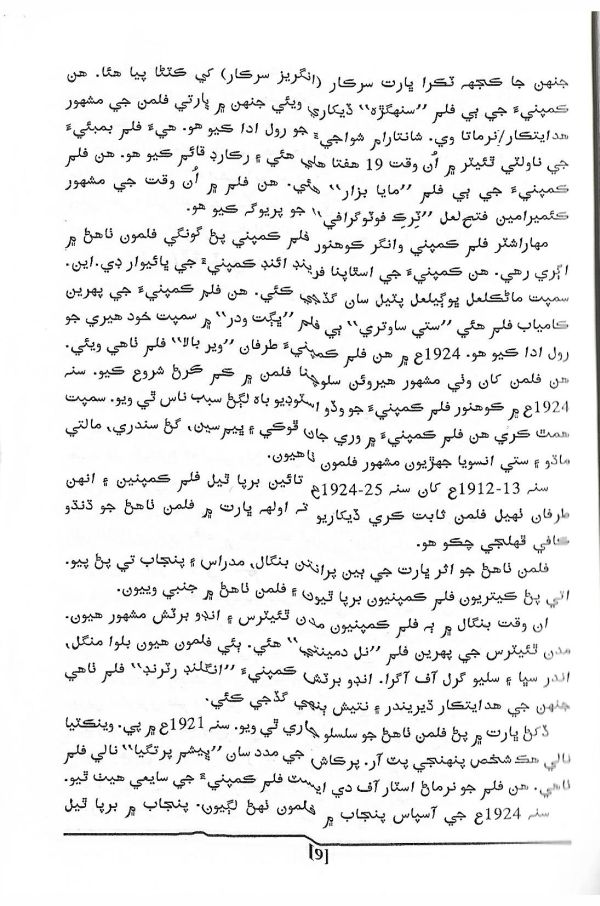 جنهن جا ڪجهہ ٽڪرا ڀارت سرڪار (انگريز سرڪار) کي ڪٽڻا پيا هئا. هن
ڪمپنيءَ جي ٻي فلم ”سنهگڙهہ“ ڏيکاري ويئي جنهن ۾ ڀارتي فلمن جي مشهور
هدايتڪار/نرماتا وي. شانتارام شواجيءَ جو رول ادا ڪيو هو. هيءَ فلم بمبئيءَ
جي ناولٽي ٿئيٽر ۾ اُن وقت 19 هفتا هلي هئي ۽ رڪارڊ قائم ڪيو هو. هن فلم
ڪمپنيءَ جي ٻي فلم ”مايا بزار“ هئي. هن فلم ۾ اُن وقت جي مشهور
ڪئميرامين فتح لعل ”ٽرڪ فوٽوگرافي“ جو پريوگہ ڪيو هو.
مهاراشٽر فلم ڪمپني وانگر ڪوهنور فلم ڪمپني پڻ گونگي فلمون ٺاهڻ ۾
اڳري رهي. هن ڪمپنيءَ جي اسٿاپنا فرينڊ ائنڊ ڪمپنيءَ جي ڀائيوار ڊي.اين.
سمپت ماڻڪلعل ڀوڳيلعل پٽيل سان گڏجي ڪئي. هن فلم ڪمپنيءَ جي پهرين
ڪامياب فلم هئي ”ستي ساوتري“ ٻي فلم ”ڀڳت ودر“ ۾ سمپت خود هيري جو
رول ادا ڪيو هو. 1924ع ۾ هن فلم ڪمپنيءَ طرفان ”وير بالا“ فلم ٺاهي ويئي.
هن فلمن کان وٺي مشهور هيروئن سلوچنا فلمن ۾ ڪم ڪرڻ شروع ڪيو. سنہ
1924ع ۾ ڪوهنور فلم ڪمپنيءَ جو وڏو اسٽوڊيو باهہ لڳڻ سبب ناس ٿي ويو. سمپت
همت ڪري هن فلم ڪمپنيءَ ۾ وري جان ڦوڪي ۽ ڀيم سين، گڻ سندري، مالتي
ماڌو ۽ ستي انسويا جهڙيون مشهور فلمون ٺاهيون.
سنہ 13-1912ع کان سنہ 25-1924ع تائين برپا ٿيل فلم ڪمپنين ۽ انهن
طرفان ٺهيل فلمن ثابت ڪري ڏيکاريو تہ اولهہ ڀارت ۾ فلمن ٺاهڻ جو ڌنڌو
ڪافي ڦهلجي چڪو هو.
فلمن ٺاهڻ جو اثر ڀارت جي ٻين پرانتن بنگال، مدراس ۽ پنجاب تي پڻ پيو.
اتي پڻ ڪيتريون فلم ڪمپنيون برپا ٿيون ۽ فلمن ٺاهڻ ۾ جنبي وييون.
ان وقت بنگال ۾ ٻہ فلم ڪمپنيون مدن ٿئيٽرس ۽ انڊو برٽش مشهور هيون.
مدن ٿئيٽرس جي پهرين فلم ”نل دمينتي“ هئي. ٻئي فلمون هيون بلوا منگل،
اندر سڀا ۽ سليو گرل آف آگرا. انڊو برٽش ڪمپنيءَ ”انگلنڊ رٽرنڊ“ فلم ٺاهي
جنهن جي هدايتڪار ڌيريندر ۽ نتيش ٻنهي گڏجي ڪئي.
ڏکڻ ڀارت ۾ پڻ فلمن ٺاهڻ جو سلسلو جاري ٿي ويو. سنہ 1921ع ۾ پي. وينڪٽيا
نالي هڪ شخص پنهنجي پٽ آر. پرڪاش جي مدد سان ”ڀيشم پرتگيا“ نالي فلم
ٺاهي. هن فلم جو نرماڻ اسٽار آف دي ايسٽ فلم ڪمپنيءَ جي سايهي هيٺ ٿيو.
سنہ 1924ع جي آسپاس پنجاب ۾ فلمون ٺهڻ لڳيون. پنجاب ۾ برپا ٿيل
[9]